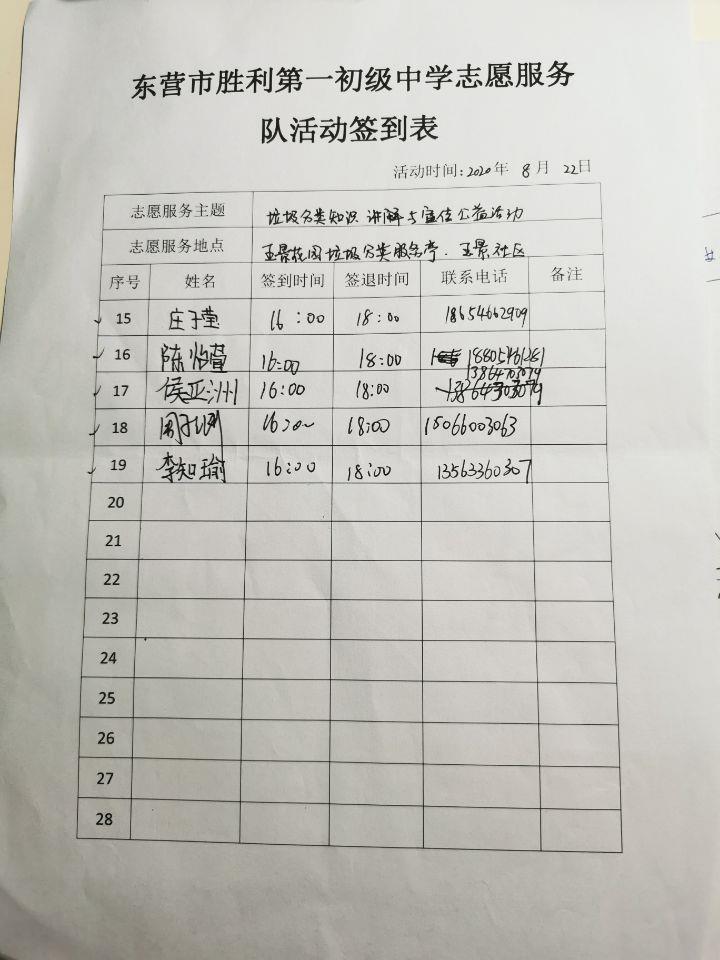 东营市胜利第一初级中学志愿服务
队活动签到表
活动时间:2020年 8月 22日
志愿服务主题 垃圾分类知识讲解与宣传公益活动
志愿服务地点 玉景花园垃圾分类服务亭.玉景社区
序号 姓名 签到时间 签退时间 联系电话 备注
15 庄子莹 16:00 18:00 18654662909
16 陈怡萱 16:00 18:00 18805461281
13864703079
17 侯亚洲 16:00 18:00
18 周子 16:00 18:00 15066003063
19 李知瑜 16:00 18:00 13563360307
20
21
22
23
24
25
26
27
28